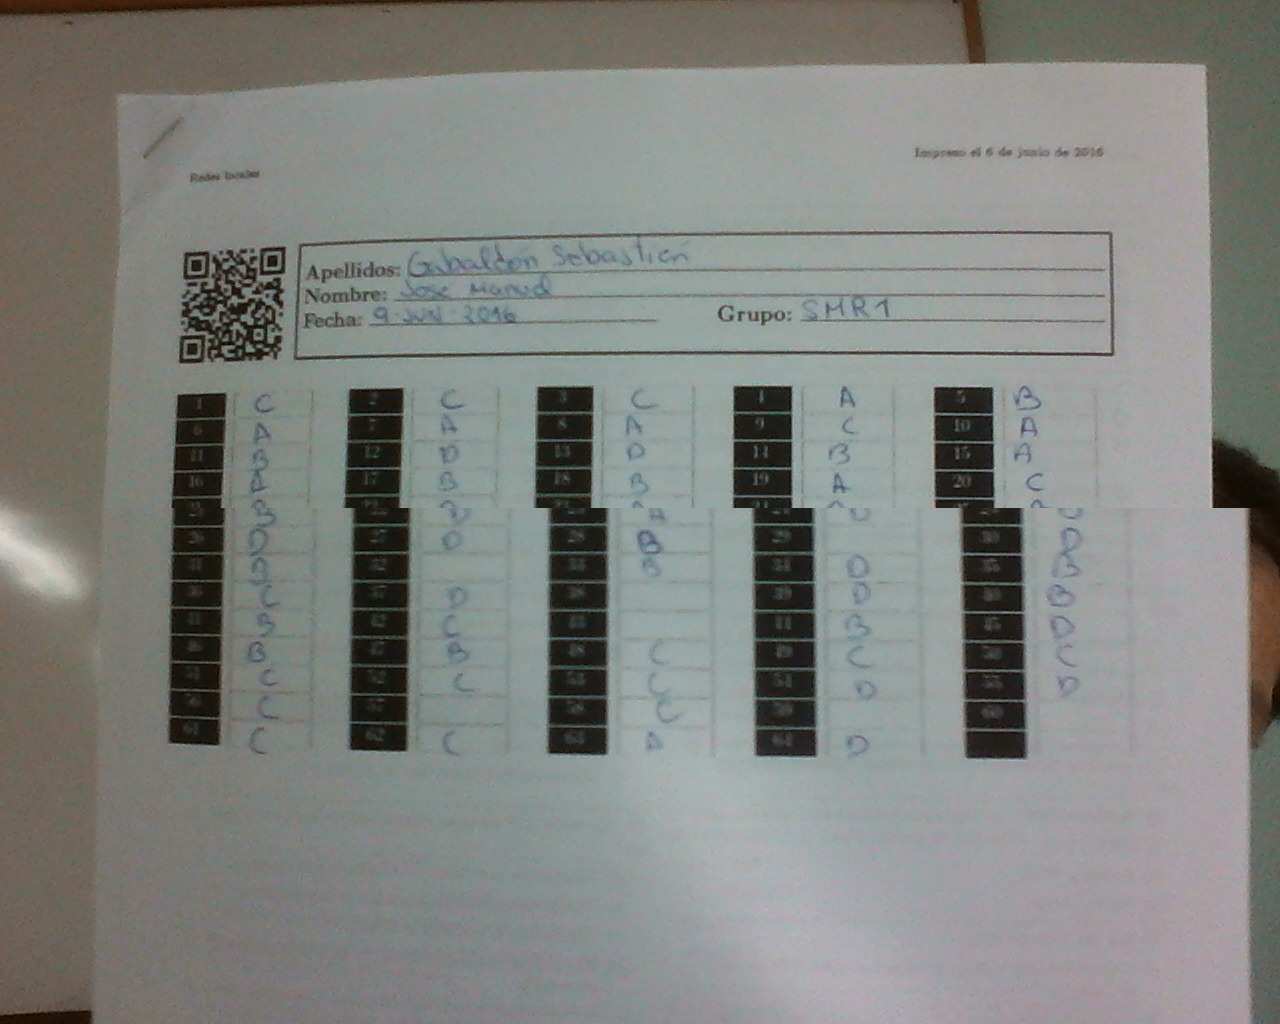 Redes locales
Impreso el 6 de junio de 2016
Apellidos: Gabaldón Sebastián
Nombre: Jose Manuel
Fecha: 9-JUN-2016 Grupo: SMR1
1 C 2 C 3 C 4 A 5 B
6 A 7 A 8 A 9 C 10 A
11 B 12 D 13 D 14 B 15 A
16 17 B 18 B 19 A 20 C
26 D 27 D 28 B 29 30 D
31 32 33 34 D 35 B
36 C 37 D 38 39 D 40 B
41 B 42 C 43 44 B 45 D
46 B 47 B 48 C 49 C 50 C
51 C 52 C 53 C 54 D 55 D
56 C 57 58 C 59 60
61 C 62 C 63 64 D